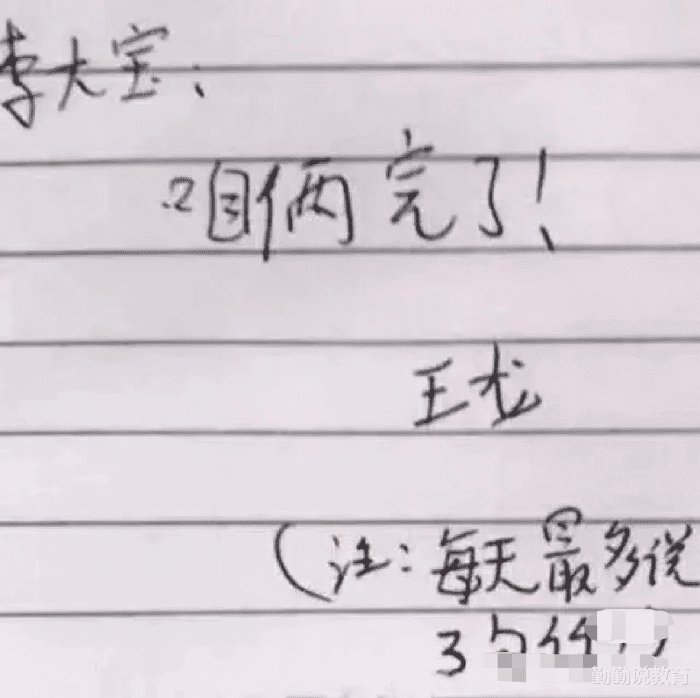 李大宝：
咱俩完了！
王龙
（注：每天最多说
3句
勤勤说教育